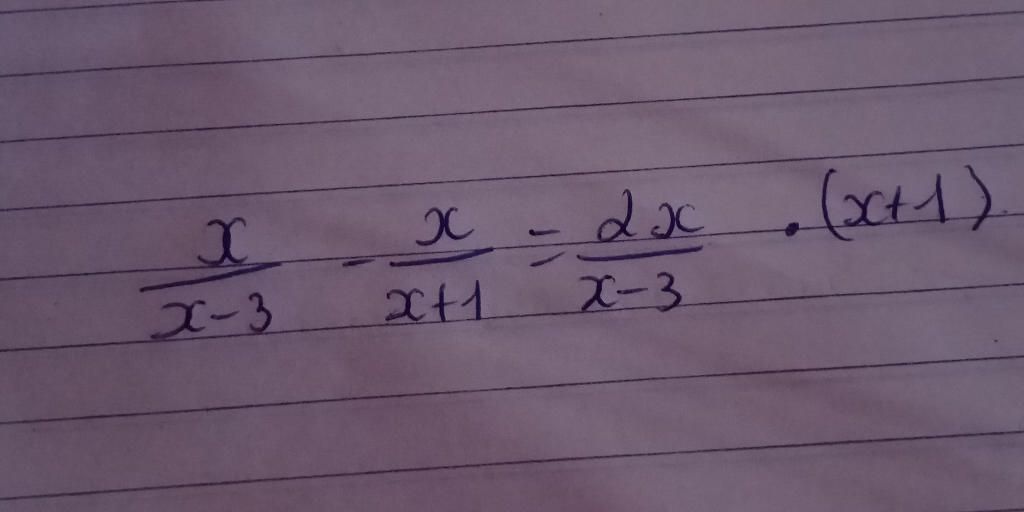 x/(x-3) - x/(x+1) = 2x/(x-3) . (x+1)